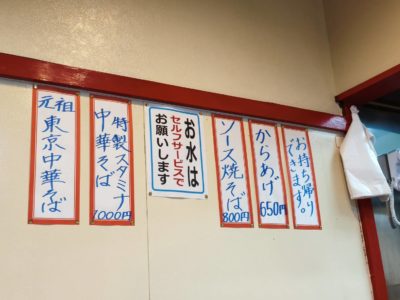 元祖
東京中華そば
特製スタミナ
中華そば
1000円
お水は
セルフサービスで
お願いします
ソース焼そば
800円
からあげ
650円
お持ち帰り
できます。